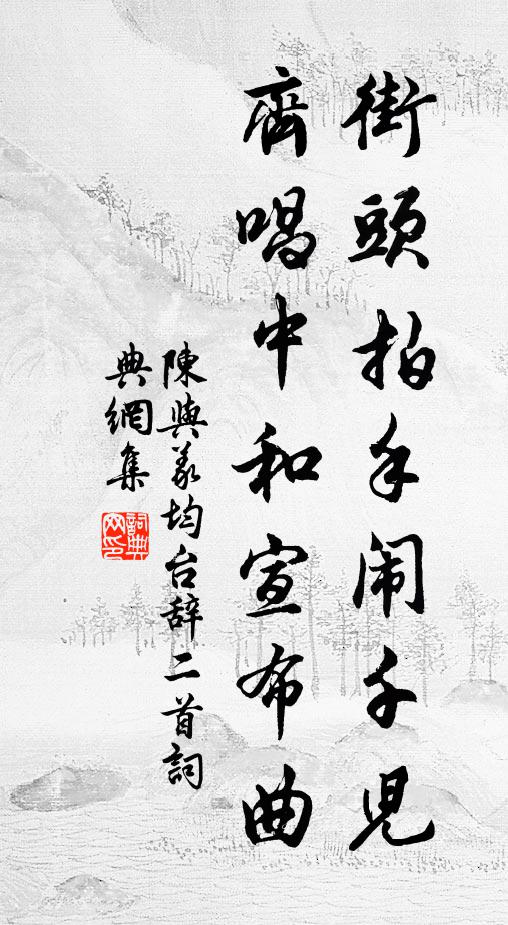 街頭拍手闹千児
齊唱中和宣布曲
陳與義均台辞二首詞
典網集
詞典网印